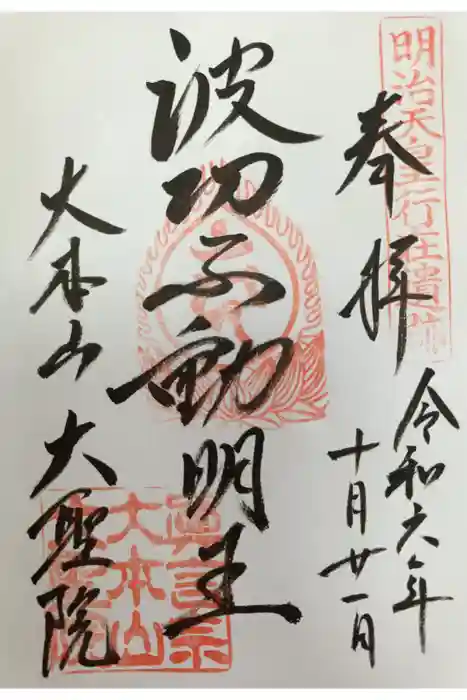 明治天皇行在遺跡
奉拝
令和六年
十月廿一日
波切不動明王
大本山 大聖院
真言宗
大本山
大聖院